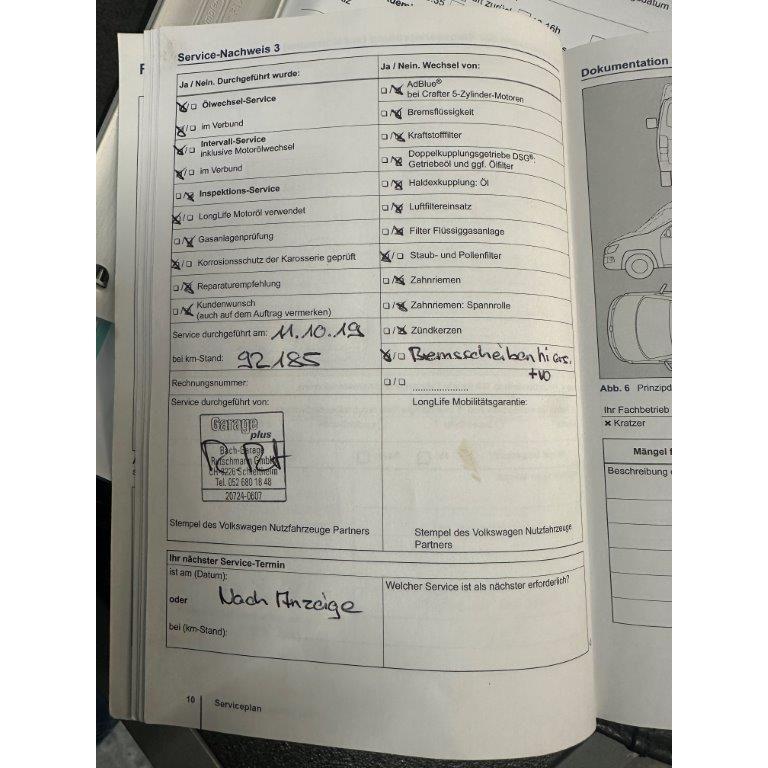 Service-Nachweis 3
Ja / Nein. Durchgeführt wurde:
Ölwechsel-Service
im Verbund
Intervall-Service
inklusive Motorölwechsel
im Verbund
Inspektions-Service
LongLife Motoröl verwendet
Gasanlagenprüfung
Korrosionsschutz der Karosserie geprüft
Reparaturempfehlung
Kundenwunsch
(auch auf dem Auftrag vermerken)
Service durchgeführt am: 11.10.19
bei km-Stand: 92185
Rechnungsnummer:
Service durchgeführt von:
Garage
plus
Bach-Garage
Rutschmann GmbH
Tel. 052 680 18 48
20724-0607
Stempel des Volkswagen Nutzfahrzeuge Partners
Ja / Nein. Wechsel von:
AdBlue®
bei Crafter 5-Zylinder-Motoren
Bremsflüssigkeit
Kraftstofffilter
Doppelkupplungsgetriebe DSG®:
Getriebeöl und ggf. Ölfilter
Haldexkupplung: Öl
Luftfiltereinsatz
Filter Flüssiggasanlage
Staub- und Pollenfilter
Zahnriemen
Zahnriemen: Spannrolle
Zündkerzen
Bremsscheiben hi
+vo
LongLife Mobilitätsgarantie:
Stempel des Volkswagen Nutzfahrzeuge
Partners
Ihr nächster Service-Termin
ist am (Datum):
oder Nach Anzeige
bei (km-Stand):
Welcher Service ist als nächster erforderlich?
10 Serviceplan
Dokumentation
Abb. 6 Prinzipd
Ihr Fachbetrieb
× Kratzer
Mängel f
Beschreibung